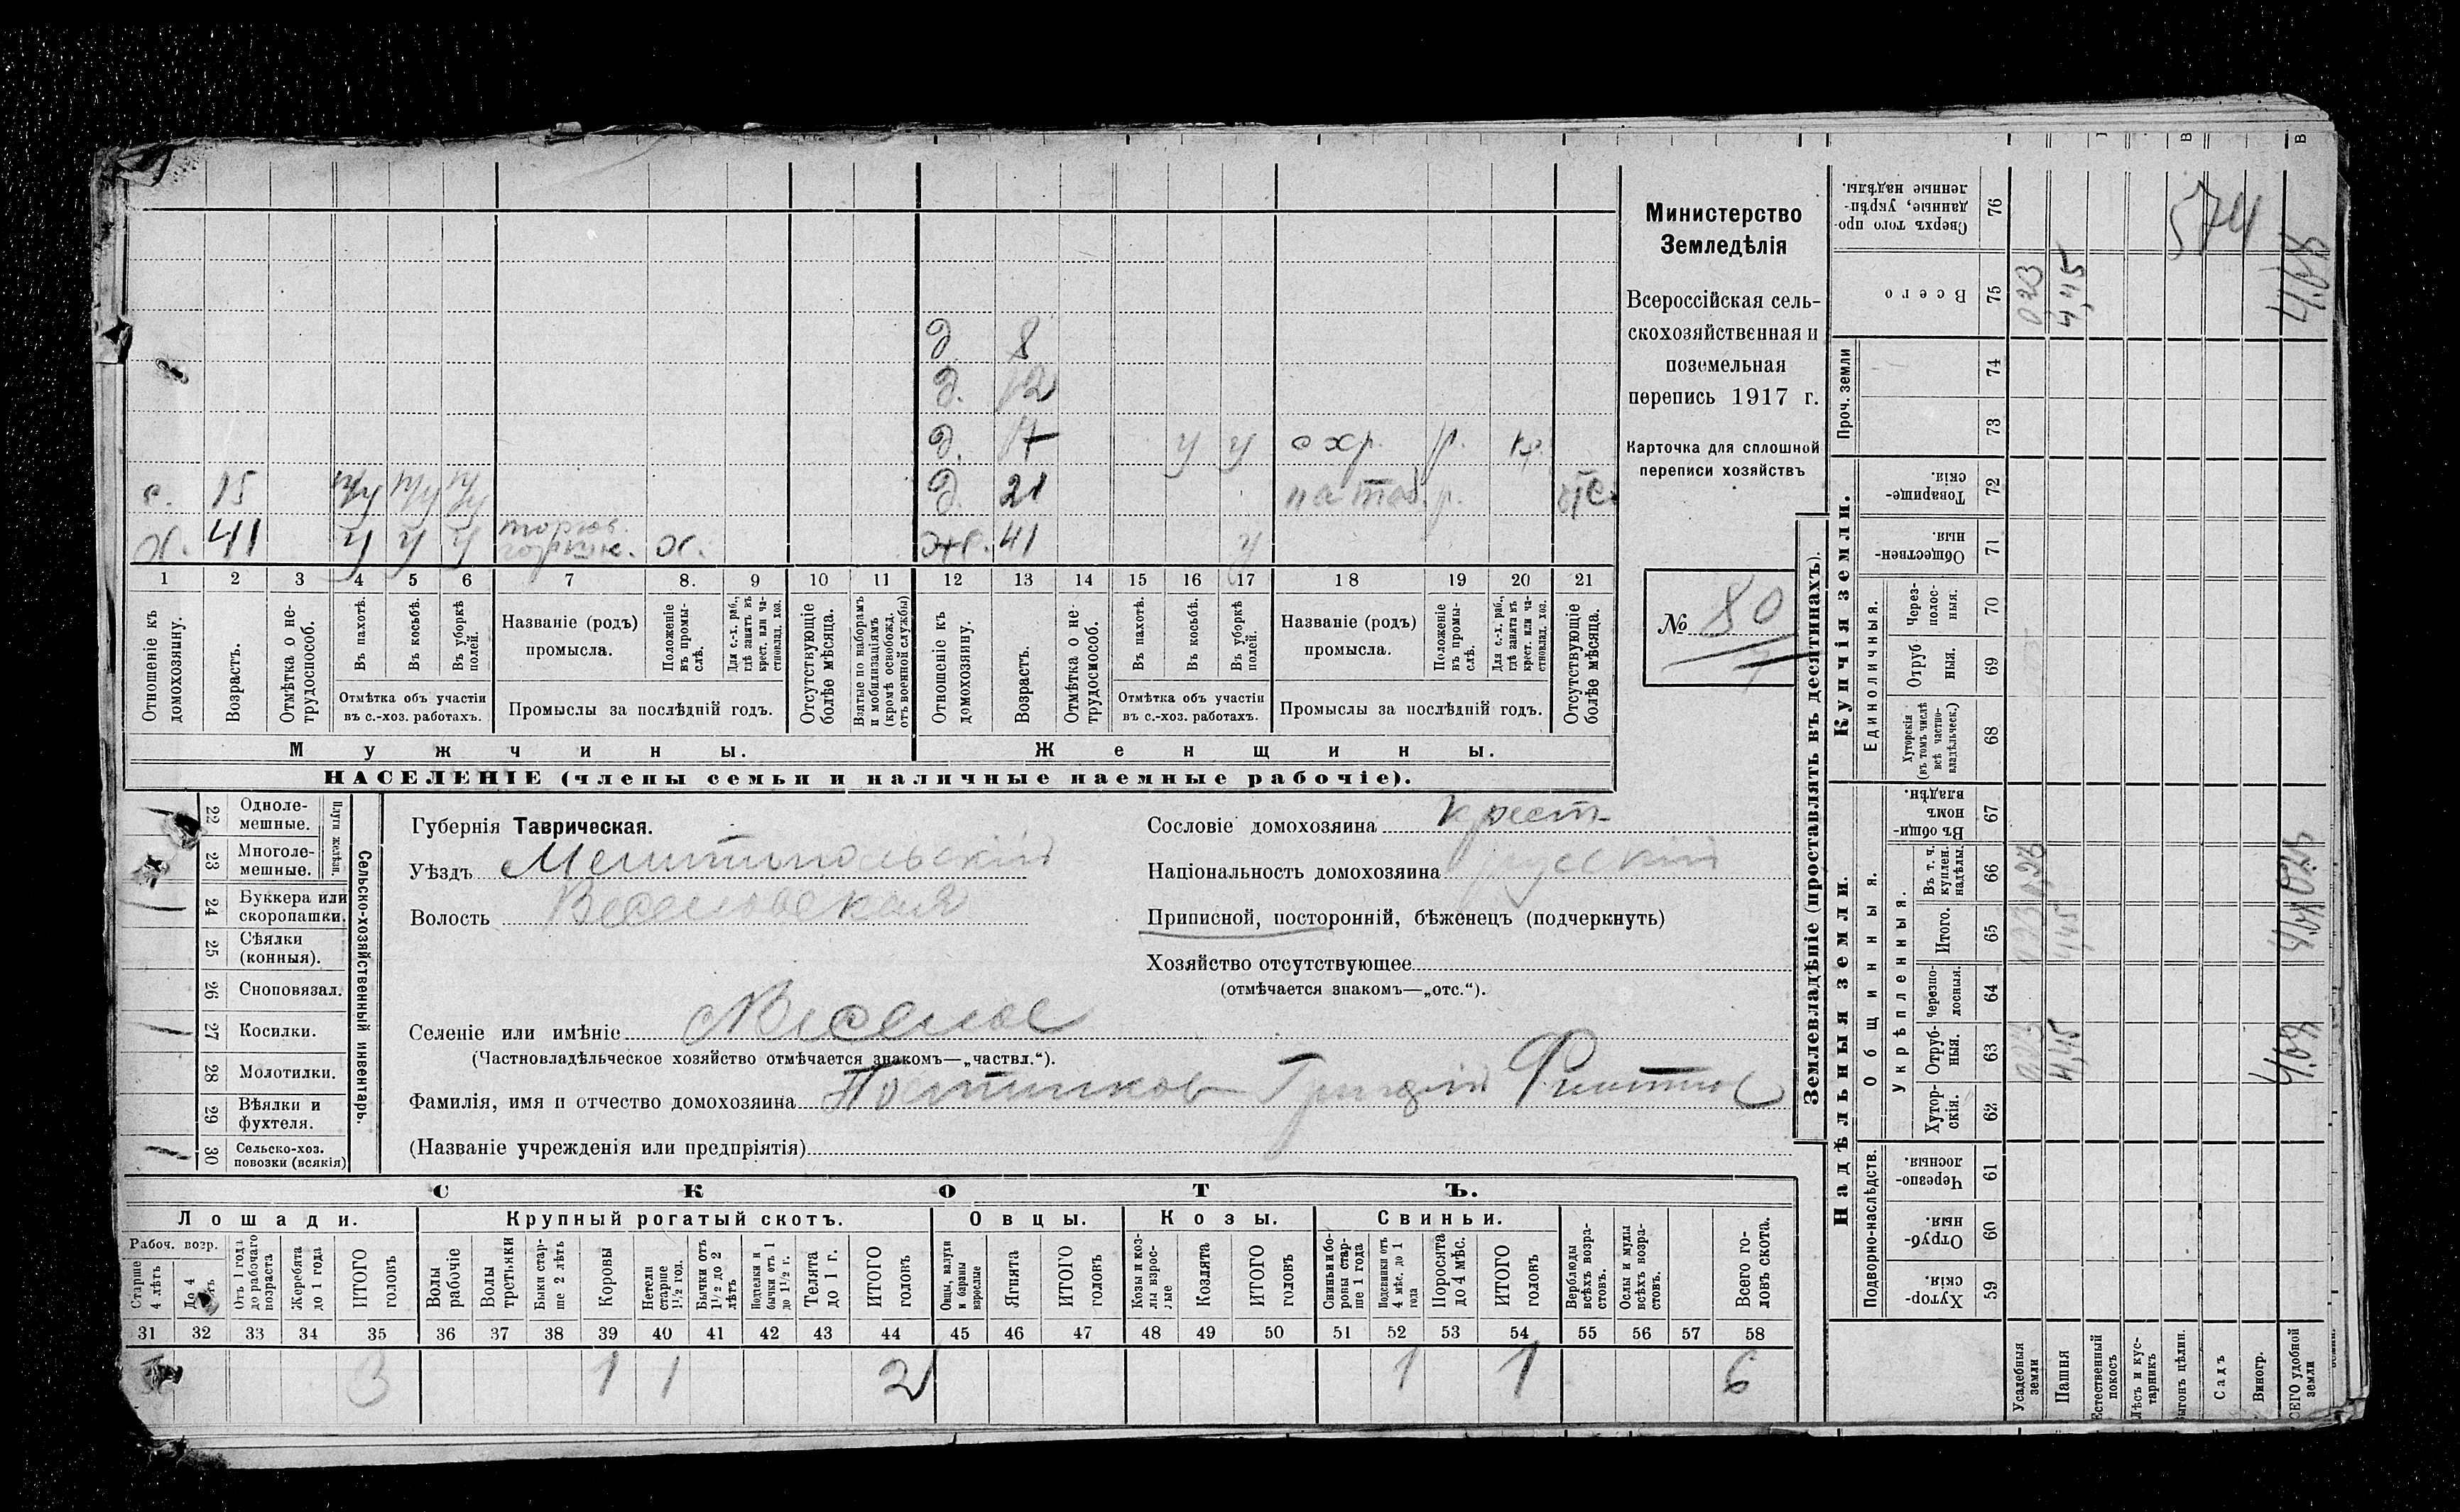 д. 8
д. 12
д. 17 у у с хр. р. кр.
с. 15 п/у п/у п/у д. 21 р. отс.
х. 41 у у у х. ж. 41 у
1 2 3 4 5 6 7 8. 9 10 11 12 13 14 15 16 17 18 19 20 21
Отношеніе къ домохозяину.
Возрастъ.
Отмѣтка о не-
трудоспособ.
Въ пахотѣ.
Въ косьбѣ.
Въ уборкѣ полей.
Отмѣтка объ участіи
въ с.-хоз. работахъ.
Названіе (родъ)
промысла.
Положеніе
въ промы-
слѣ.
Для с.-х. раб.,
гдѣ занятъ въ
крест. или ча-
стновлад. хоз.
Промыслы за послѣдній годъ.
Отсутствующіе
болѣе мѣсяца.
Взятые по наборамъ
и мобилизаціямъ
(кромѣ освобожд.
отъ военной службы)
Отношеніе къ
домохозяину.
Возрастъ.
Отмѣтка о не-
трудоспособ.
Въ пахотѣ.
Въ косьбѣ.
Въ уборкѣ полей.
Отмѣтка объ участіи
въ с.-хоз. работахъ.
Названіе (родъ)
промысла.
Положеніе
въ промы-
слѣ.
Для с.-х. раб.,
гдѣ занята въ
крест. или ча-
стновлад. хоз.
Промыслы за послѣдній годъ.
Отсутствующіе
болѣе мѣсяца.
Мужчины.
Женщины.
НАСЕЛЕНІЕ (члены семьи и наличные наемные рабочіе).
Министерство
Земледѣлія
Всероссійская сель-
скохозяйственная и
поземельная
перепись 1917 г.
Карточка для сплошной
переписи хозяйствъ
№ 80
22 Одноле-
мешные.
23 Многоле-
мешные.
Плуги желѣзн.
24 Буккера или
скоропашки.
25 Сѣялки
(конныя).
26 Сноповязал.
27 Косилки.
28 Молотилки.
29 Вѣялки и
фухтеля.
30 Сельско-хоз.
повозки (всякія)
Сельско-хозяйственный инвентарь.
Губернія Таврическая.
Уѣздъ Мелитопольскій
Волость Веселовская
Сословіе домохозяина крест.
Національность домохозяина русскій
Приписной, посторонній, бѣженецъ (подчеркнуть)
Хозяйство отсутствующее
(отмѣчается знакомъ—„отс.“).
Селеніе или имѣніе Веселое
(Частновладѣльческое хозяйство отмѣчается знакомъ—„частвл.“).
Фамилія, имя и отчество домохозяина Григорій
(Названіе учрежденія или предпріятія)
СКОТЪ.
Лошади. Крупный рогатый скотъ. Овцы. Козы. Свиньи.
Рабоч. возр.
Старше
4 лѣтъ
До 4
лѣтъ
Отъ 1 года
до рабочаго
возраста
Жеребята
до 1 года
ИТОГО
головъ
Волы
рабочіе
Волы
третьяки
Быки стар-
ше 2 лѣтъ
Коровы
Нетели
старше
1½ год.
Бычки отъ
1½ до 2
лѣтъ
Поделки и
бычки отъ 1
до 1½ г.
Телята
до 1 г.
ИТОГО
головъ
Овцы, валухи
и бараны
взрослые
Ягнята
ИТОГО
головъ
Козы и коз-
лы взрос-
лые
Козлята
ИТОГО
головъ
Свиньи и бо-
ровы стар-
ше 1 года
Подсвинки отъ
4 мѣс. до 1
года
Поросята
до 4 мѣс.
ИТОГО
головъ
Верблюды
всѣхъ возра-
стовъ.
Ослы и мулы
всѣхъ возра-
стовъ.
Всего го-
ловъ скота.
31 32 33 34 35 36 37 38 39 40 41 42 43 44 45 46 47 48 49 50 51 52 53 54 55 56 57 58
3 1 1 2 1 1 6
Землевладѣніе (проставлять въ десятинахъ).
Надѣльныя земли.
Купчія земли.
Проч. земли
Подворно-наслѣдств.
Общинныя.
Укрѣпленныя.
Единоличныя.
Хутор-
скія. 59
Отруб-
ныя. 60
Черезпо-
лосныя. 61
Хутор-
скія. 62
Отруб-
ныя. 63
Черезпо-
лосныя. 64
Итого. 65
Въ т. ч.
куплен.
надѣлы. 66
Въ общи-
номъ
владѣн. 67
Хуторскія
(въ томъ числѣ
всѣ частно-
владѣльческ.) 68
Отруб
ныя. 69
Через-
полос-
ныя. 70
Обществен-
ныя. 71
Товарище-
скія. 72
73
74
Всего 75
Сверхъ того про-
данные, укрѣп-
ленные надѣлы. 76
Усадебныя
земли 0,23 0,23 0,23
Пашня 4,45 4,45 4,45
Естественный
покосъ
Лѣсъ и кус-
тарникъ
Выгонъ цѣлин.
Садъ
Виногр.
ВСЕГО удобной
земли 4,68 4,68 4,68
574